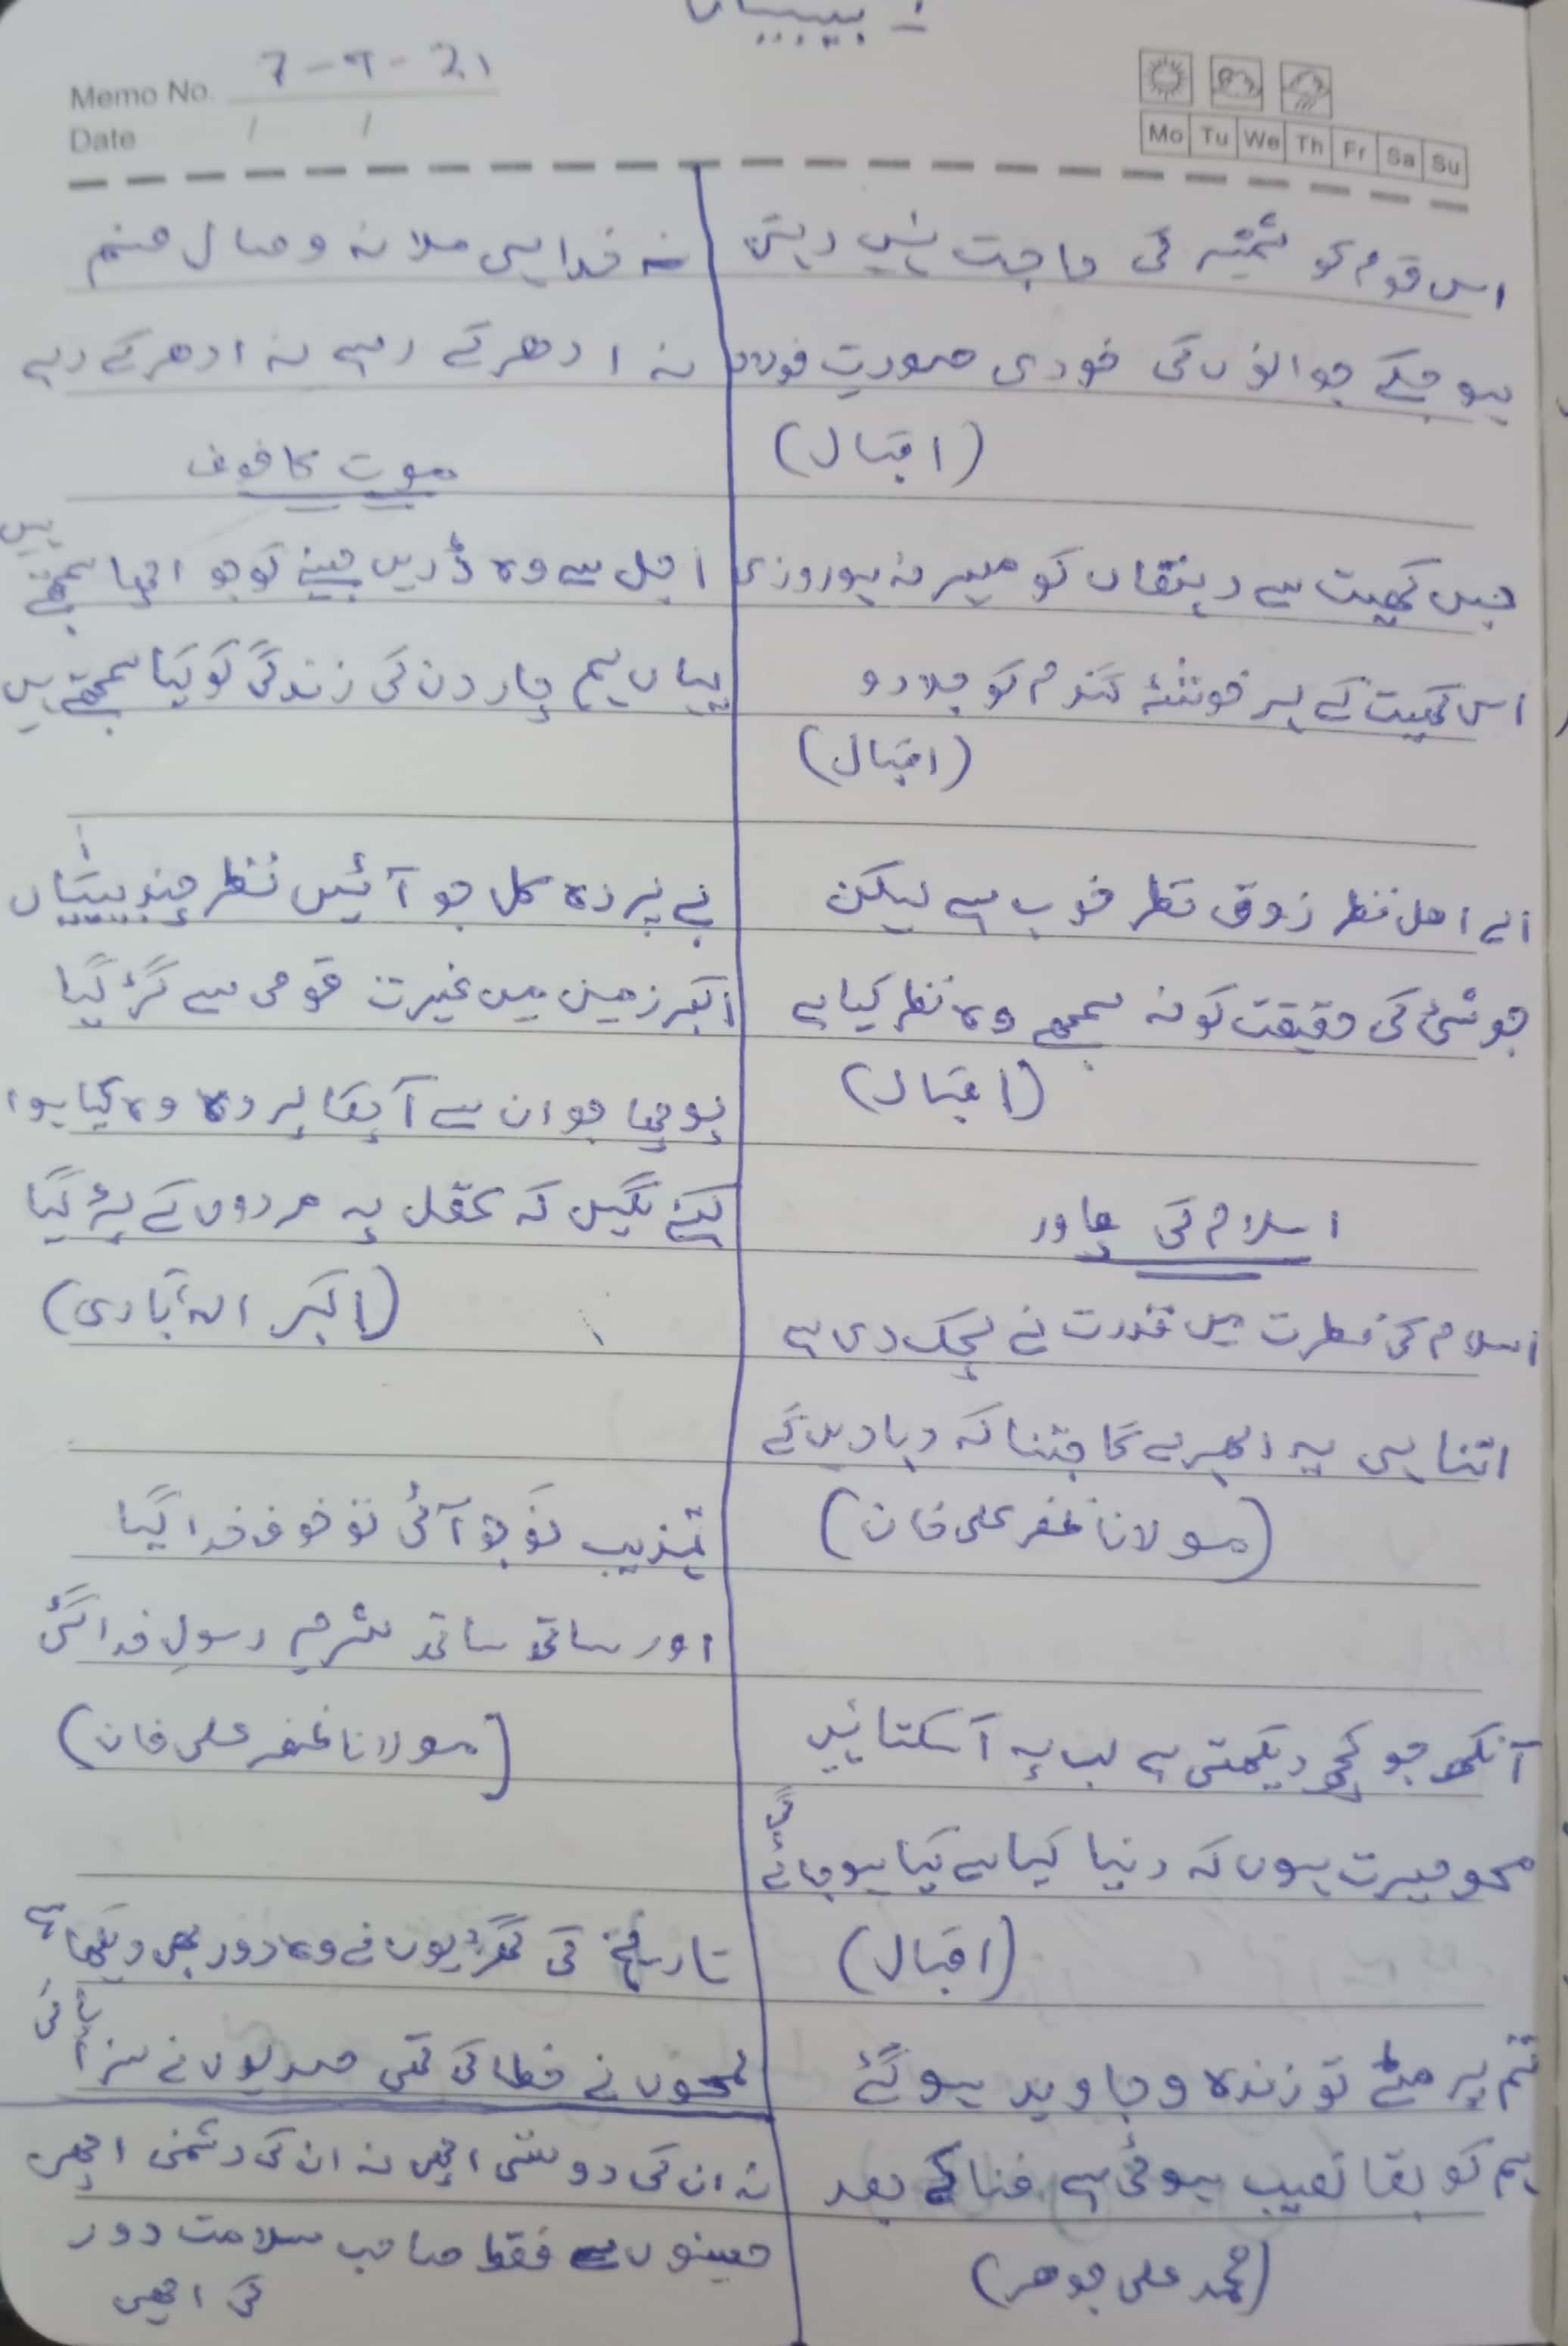 ۱ - بیبیاں
Memo No. 7-9-21
Date / /
Mo Tu We Th Fr Sa Su
اس قوم کو شمشیر کی حاجت نہیں رہتی
ہو جسکے جوانوں کی خودی صورتِ فولاد
(اقبال)
جس کھیت سے دہقاں کو میسر نہ ہو روزی
اس کھیت کے ہر خوشۂ گندم کو جلا دو
(اقبال)
اے اھل نظر ذوق نظر خوب ہے لیکن
جو شئ کی حقیقت کو نہ سمجھے وہ نظر کیا ہے
(اقبال)
اسلام کی
اسلام کی فطرت میں قدرت نے لچک دی ہے
اتنا ہی یہ ابھرے گا جتنا کہ دبا دیں گے
(مولانا ظفر علی خان)
آنکھ جو کچھ دیکھتی ہے لب پہ آسکتا نہیں
محو حیرت ہوں کہ دنیا کیا سے کیا ہو جائے گی
(اقبال)
تم پر مٹے تو زندہ و جاوید ہو گئے
ہم کو بقا نصیب ہوئی ہے فنا کے بعد
(محمد علی جوھر)
نہ خدا ہی ملا نہ وصال صنم
نہ ادھر کے رہے نہ ادھر کے رہے
موت کا خوف
اجل سے وہ ڈریں جینے کو جو اچھا سمجھتے ہیں
یہاں ہم چار دن کی زندگی کو کیا سمجھتے ہیں
بے پردہ کل جو آئیں نظر چند بیبیاں
اکبر زمیں میں غیرت قومی سے گڑ گیا
پوچھا جو ان سے آپکا پردہ وہ کیا ہوا
کہنے لگیں کہ عقل پہ مردوں کے پڑ گیا
(اکبر الہ آبادی)
تہذیب نو جو آئی تو خوف خدا گیا
اور ساتھ ساتھ شرمِ رسولِ خدا گئی
(مولانا ظفر علی خان)
تاریخ کی گھڑیوں نے وہ دور بھی دیکھا ہے
لمحوں نے خطا کی تھی صدیوں نے سزا پائی
نہ ان کی دوستی اچھی نہ ان کی دشمنی اچھی
حسینوں سے فقط صاحب سلامت دور
کی اچھی